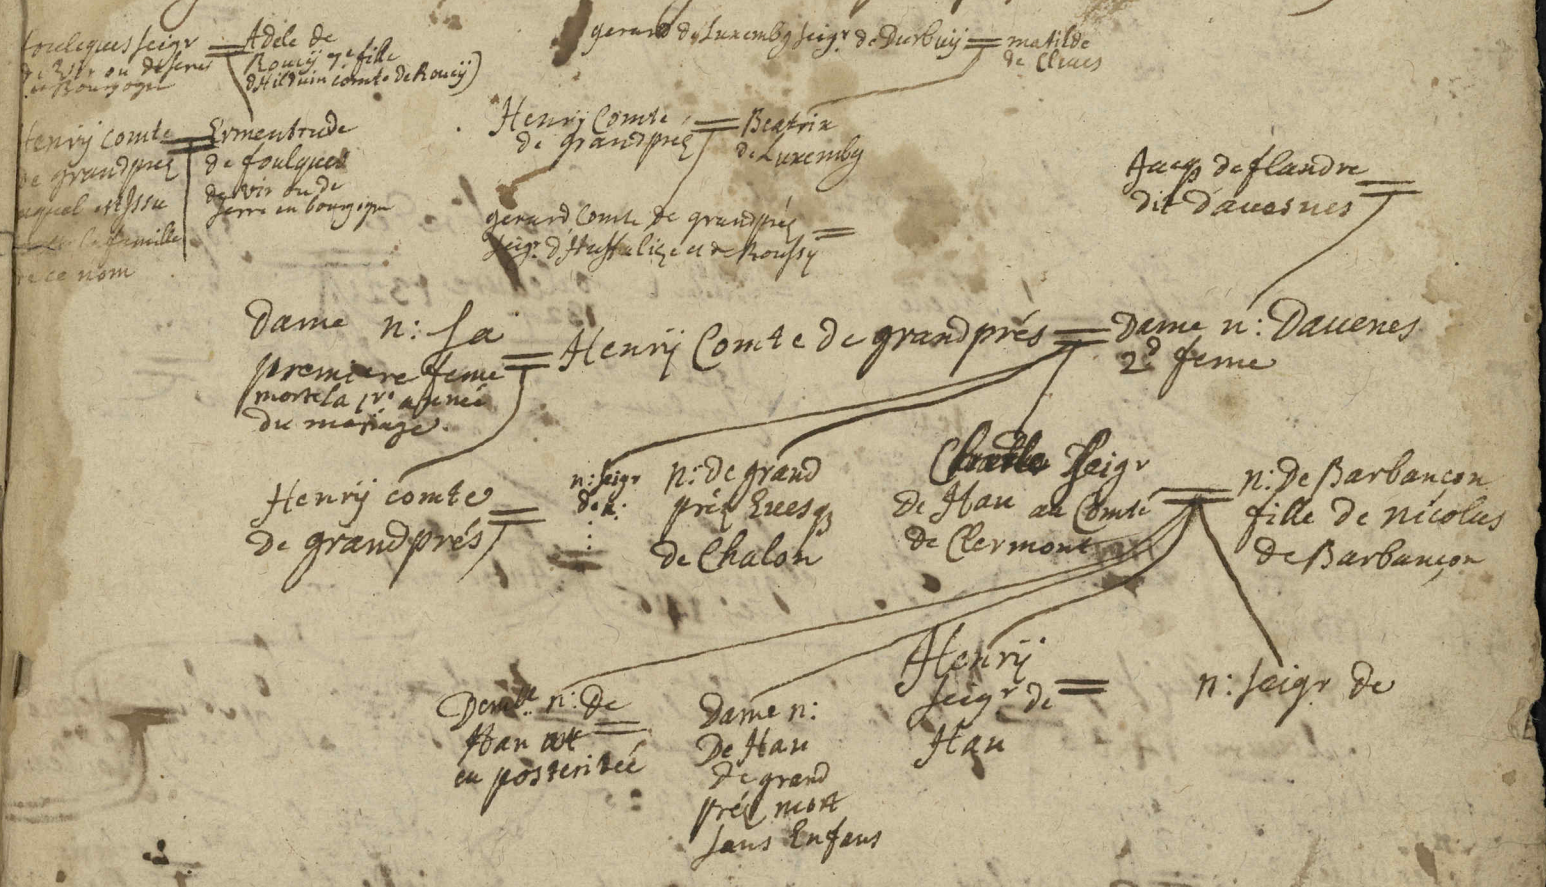 foulques seigr
de Vir ou de serre
en Bourgogne
Adele de
Roucÿ 7e fille
d'Hilduin comte de Roucÿ)
gerard de Luxembg seigr. de Durbuÿ
matilde
de Cleues
Henrÿ comte
de grandprez
duquel est issu
la famille
de ce nom
Ermentrude
de foulques
de Vir ou de
serre en bourgogne
Henrÿ Comte
de grandprez
Beatrix
de Luxembg
Jacqs de flandre
dit d'auesnes
gerard Comte de grandprez
seigr. d'Huffalize et de Roussy
Dame n: sa
premiere feme
morte la 1re année
du mariage
Henrÿ Comte de grandprés
Dame n: Dauenes
2e feme
Henrÿ comte
de grandprés
n: seigr
de n:
n: de grand
préz Euesq
de Chalon
seigr
de Han au Comté
de Clermont
n: de Barbançon
fille de nicolas
de Barbançon
Demlle n: de
Han
en posteritéé
Dame n:
De Han
de grand
préz mort
sans Enfans
Henrÿ
seigr de
Han
n: seigr de